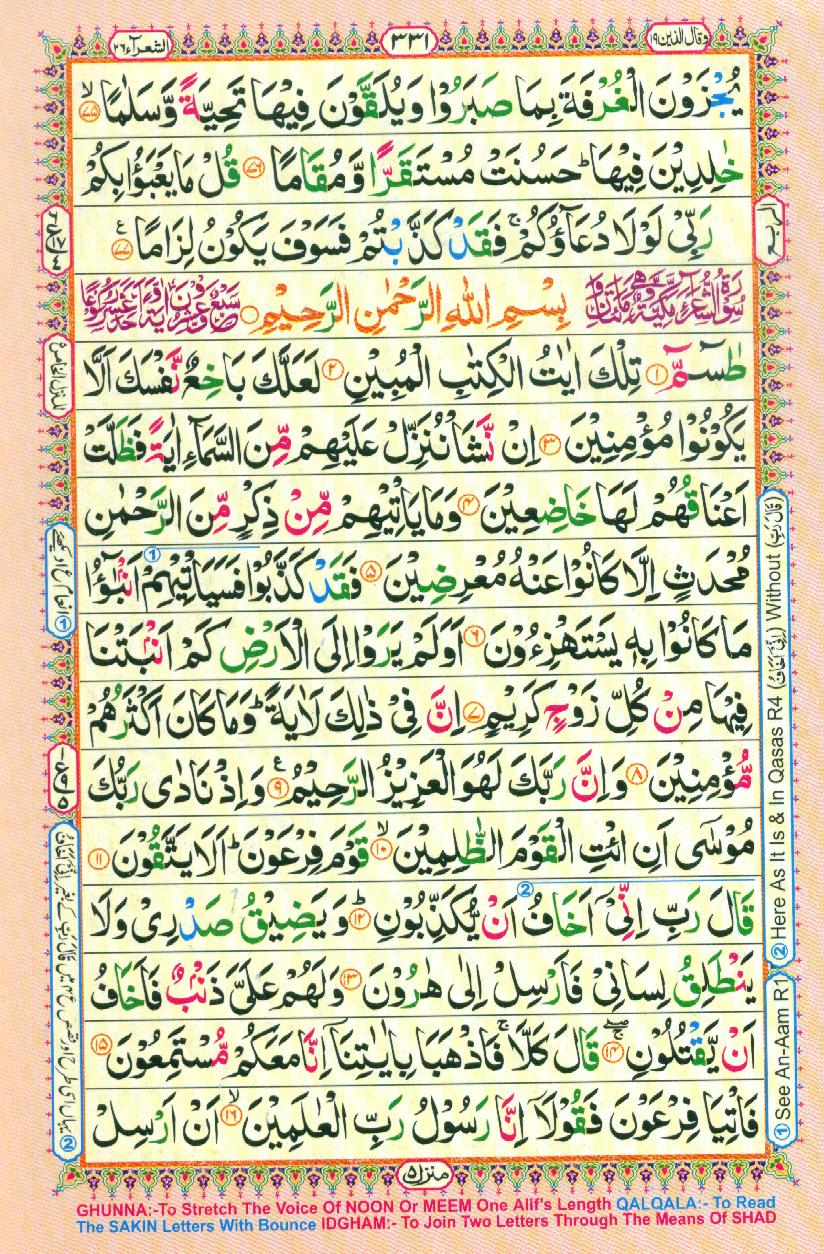 وقال الذين ١٩
٣٣١
الشعرآء ٢٦
يُجْزَوْنَ الْغُرْفَةَ بِمَا صَبَرُوْا وَيُلَقَّوْنَ فِيْهَا تَحِيَّةً وَّسَلٰمًا ۙ ﴿٧٥﴾
خٰلِدِيْنَ فِيْهَا ؕ حَسُنَتْ مُسْتَقَرًّا وَّمُقَامًا ﴿٧٦﴾ قُلْ مَا يَعْبَؤُا بِكُمْ
رَبِّيْ لَوْلَا دُعَآؤُكُمْ ۚ فَقَدْ كَذَّبْتُمْ فَسَوْفَ يَكُوْنُ لِزَامًا ﴿٧٧﴾
بِسْمِ اللهِ الرَّحْمٰنِ الرَّحِيْمِ
طٰسٓمّٓ ﴿١﴾ تِلْكَ اٰيٰتُ الْكِتٰبِ الْمُبِيْنِ ﴿٢﴾ لَعَلَّكَ بَاخِعٌ نَّفْسَكَ اَلَّا
يَكُوْنُوْا مُؤْمِنِيْنَ ﴿٣﴾ اِنْ نَّشَاْ نُنَزِّلْ عَلَيْهِمْ مِّنَ السَّمَآءِ اٰيَةً فَظَلَّتْ
اَعْنَاقُهُمْ لَهَا خَاضِعِيْنَ ﴿٤﴾ وَمَا يَاْتِيْهِمْ مِّنْ ذِكْرٍ مِّنَ الرَّحْمٰنِ
مُحْدَثٍ اِلَّا كَانُوْا عَنْهُ مُعْرِضِيْنَ ﴿٥﴾ فَقَدْ كَذَّبُوْا فَسَيَاْتِيْهِمْ اَنْۢبٰٓؤُا
مَا كَانُوْا بِهٖ يَسْتَهْزِءُوْنَ ﴿٦﴾ اَوَلَمْ يَرَوْا اِلَى الْاَرْضِ كَمْ اَنْۢبَتْنَا
فِيْهَا مِنْ كُلِّ زَوْجٍ كَرِيْمٍ ﴿٧﴾ اِنَّ فِيْ ذٰلِكَ لَاٰيَةً ؕ وَمَا كَانَ اَكْثَرُهُمْ
مُّؤْمِنِيْنَ ﴿٨﴾ وَاِنَّ رَبَّكَ لَهُوَ الْعَزِيْزُ الرَّحِيْمُ ﴿٩﴾ وَاِذْ نَادٰى رَبُّكَ
مُوْسٰٓى اَنِ ائْتِ الْقَوْمَ الظّٰلِمِيْنَ ۙ ﴿١٠﴾ قَوْمَ فِرْعَوْنَ ؕ اَلَا يَتَّقُوْنَ ﴿١١﴾
قَالَ رَبِّ اِنِّيْٓ اَخَافُ اَنْ يُّكَذِّبُوْنِ ؕ ﴿١٢﴾ وَيَضِيْقُ صَدْرِيْ وَلَا
يَنْطَلِقُ لِسَانِيْ فَاَرْسِلْ اِلٰى هٰرُوْنَ ﴿١٣﴾ وَلَهُمْ عَلَيَّ ذَنْۢبٌ فَاَخَافُ
اَنْ يَّقْتُلُوْنِ ۚ ﴿١٤﴾ قَالَ كَلَّا ۚ فَاذْهَبَا بِاٰيٰتِنَآ اِنَّا مَعَكُمْ مُّسْتَمِعُوْنَ ﴿١٥﴾
فَاْتِيَا فِرْعَوْنَ فَقُوْلَآ اِنَّا رَسُوْلُ رَبِّ الْعٰلَمِيْنَ ۙ ﴿١٦﴾ اَنْ اَرْسِلْ
الربع
② Here As It Is & In Qasas R4 (اِنِّيْٓ اَخَافُ) Without (قَالَ رَبِّ)
① See An-Aam R1
منزل ٥
GHUNNA:-To Stretch The Voice Of NOON Or MEEM One Alif's Length QALQALA:- To Read
The SAKIN Letters With Bounce IDGHAM:- To Join Two Letters Through The Means Of SHAD